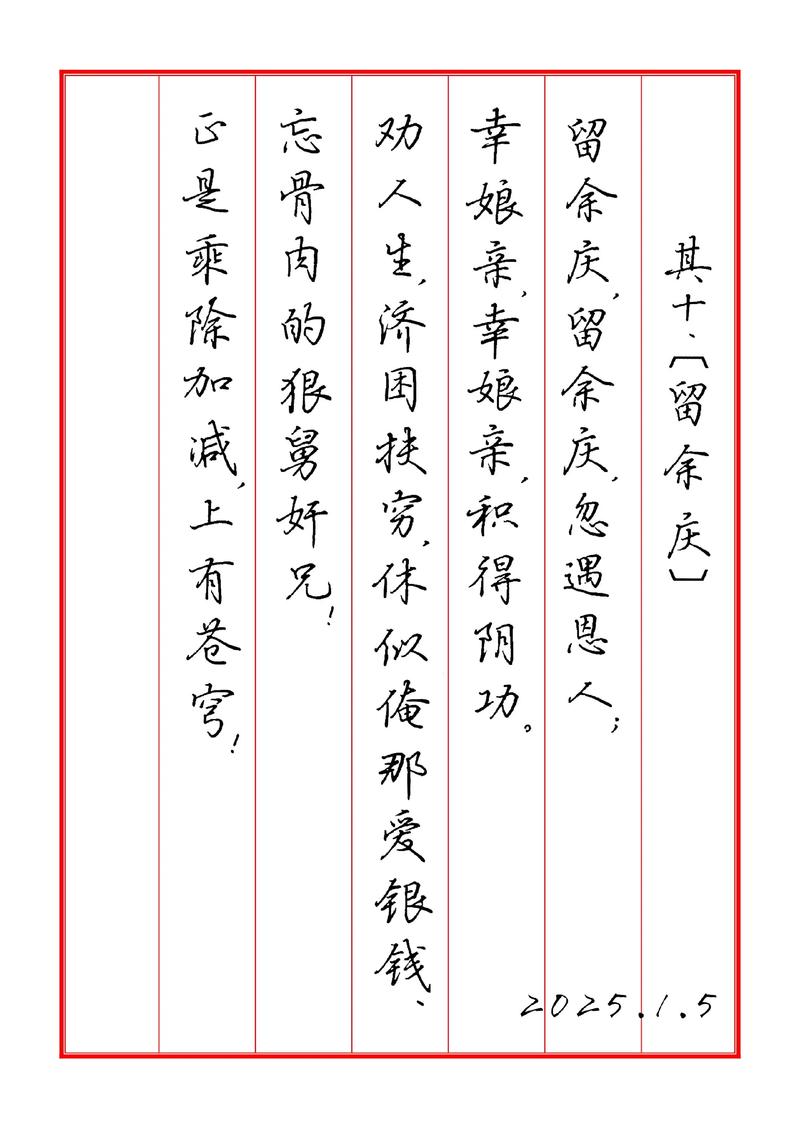 其十、〔留余庆〕
留余庆,留余庆,忽遇恩人;
幸娘亲,幸娘亲,积得阴功。
劝人生,济困扶穷,休似俺那爱银钱、
忘骨肉的狠舅奸兄!
正是乘除加减,上有苍穹!
2025.1.5